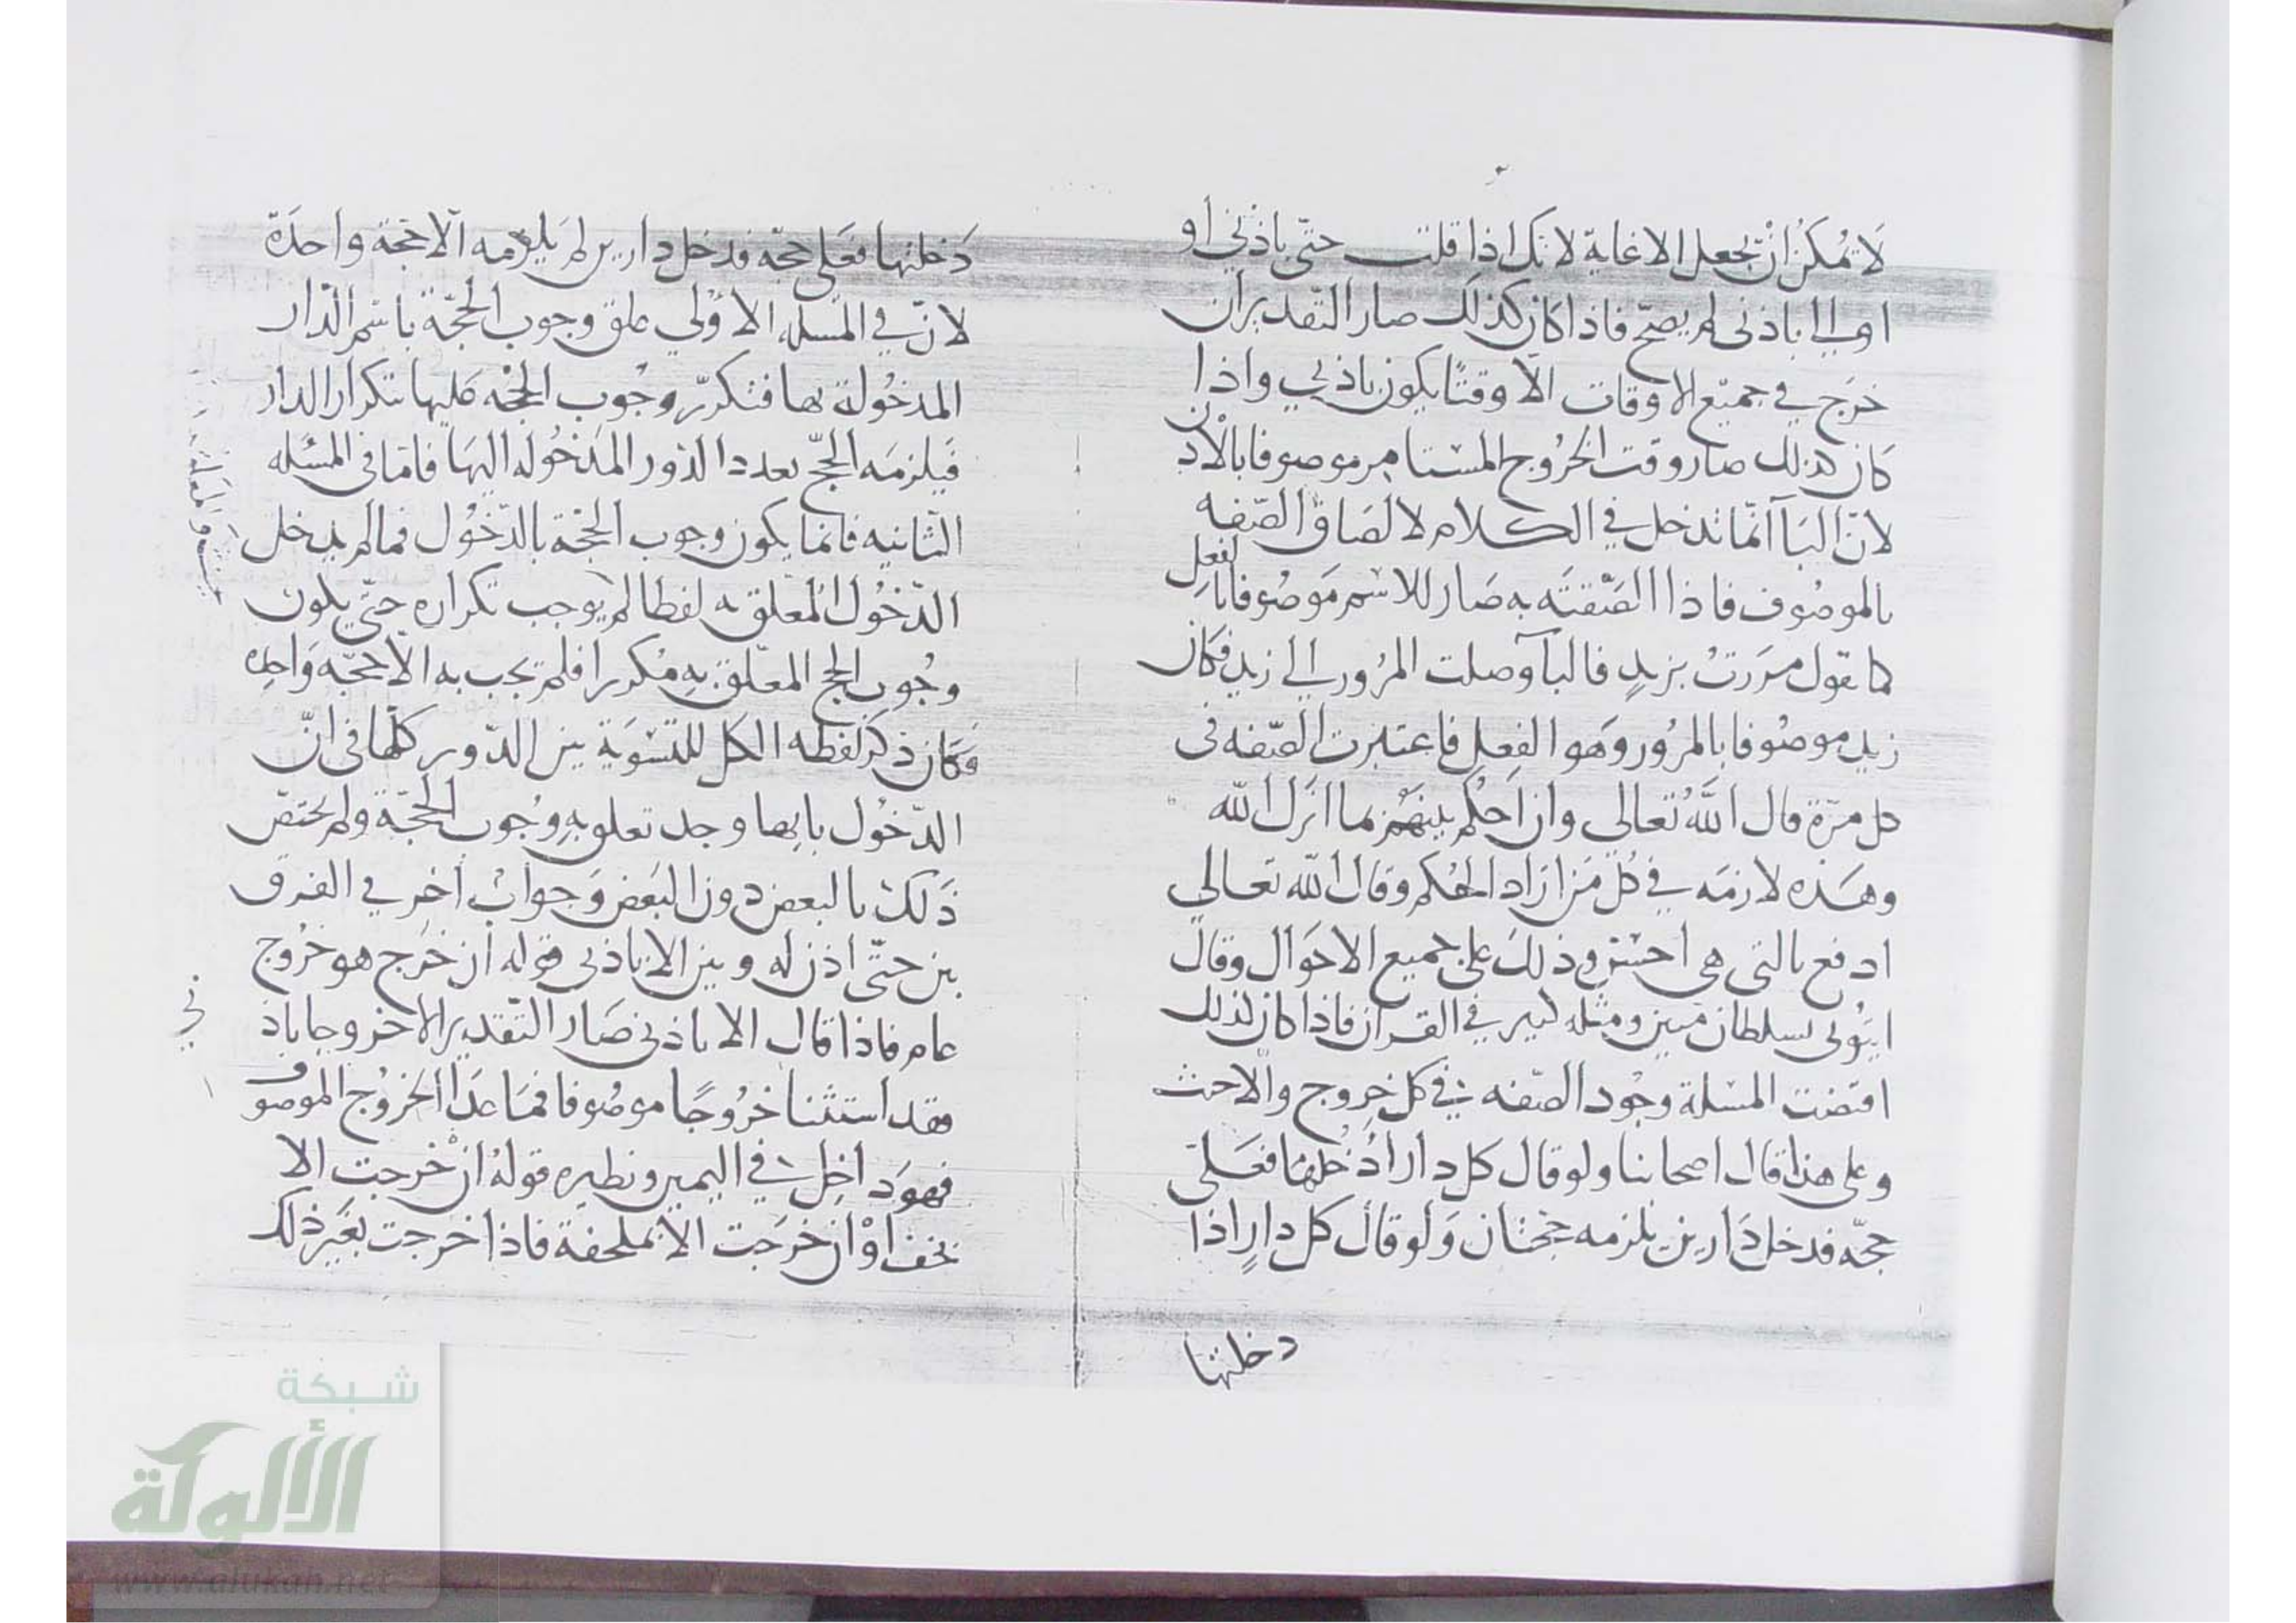 لَا يُمكنُ انْ تجعل الا غاية لانك اذا قلت حتّى باذني او
او الى باذنى لم يصحّ فاذا كان كذلك صار التّقدير ان
خرَج في جميْع الاوقات الّا وقتًا يكون باذني واذا
كان كذلك صار وقت الخرُوج المسْتثنا موصوفا بالْاذن
لانّ البَآ انّما تدخل في الكلام لالصَاق الصّفه
بالموصُوف فاذا الصَقتَه به صَار للاسْم مَوصُوفا بالفعل
كما تقول مرَرتُ بزيدٍ فالبآ وصلت المرُور الى زيدٍ فكان
زيد موصُوفا بالمرُور وَهو الفعل فاعتبرت الصّفه فى
كل مرّة قال اللَّهُ تعالى وان احكُم بينهُم بما انزَل اللّه
وهَذه لازمَه في كُلّ مَن ارَاد الحُكم وقال اللّه تعالي
ادفع بالتى هى احسَن وذلكَ على جميع الاحوَال وقال
ايتُونى بسلطان مبين ومثله كثير في القران فاذا كان كذلك
اقتضت المسْلة وجُود الصّفه في كل خروج والّا حنث
وعلى هذا قال اصحابنا ولو قال كل دار ادْخُلهَا فعَلىّ
حجّه فدخل دَارين يلزمه حجّتان وَلو قال كل دارٍ اذا
دخلتها
دَخلتها فعَلى حجّه فدخل دارين لم يَلزمه الّا حجّة واحدَة
لانّ في المسْله الاوْلي علق وجوب الحجّة باسْم الدّار
المدخُولة بها فتكرّر وجُوب الحجّه عَليها بتكرار الدار
فَيلزمَه الحجّ بعدد الدّور المدْخُوله اليهَا فامّا فى المسْله
الثانيه فانما يكون وجوب الحجّة بالدّخُول فما لم يدخل
الدّخُول المُعلّق به لفظا لم يوجب تكراره حتّي يكون
وجُوب الحج المعلّق بهِ مُكررا فلم يجب به الّا حجّه وَاحده
وَكان ذكر لفظه الكل للتسْوَية بين الدّور كلّها فى انّ
الدّخُول بايها وجد تعلق بهِ وجُوب الحجّة ولم يختصّ
ذَلكَ بالبعض دون البَعض وَجوابٌ آخر في الفرق
بين حتّى اذن له وبين الا باذنى قوله ان خرَج هو خرُوج
عام فاذا قال الا باذنى صَار التّقدير الا خروجا باذنى
فقد استثنا خرُوجًا موصُوفا فمَا عدَا الخرُوج الموصوف
فهوَ داخل في اليمين ونظيره قولهُ انْ خرجت الا
بخف اوْ ان خرَجت الا بملحفة فاذا خرَجت بغَير ذلك
شبكة
الألوكة
www.alukah.net